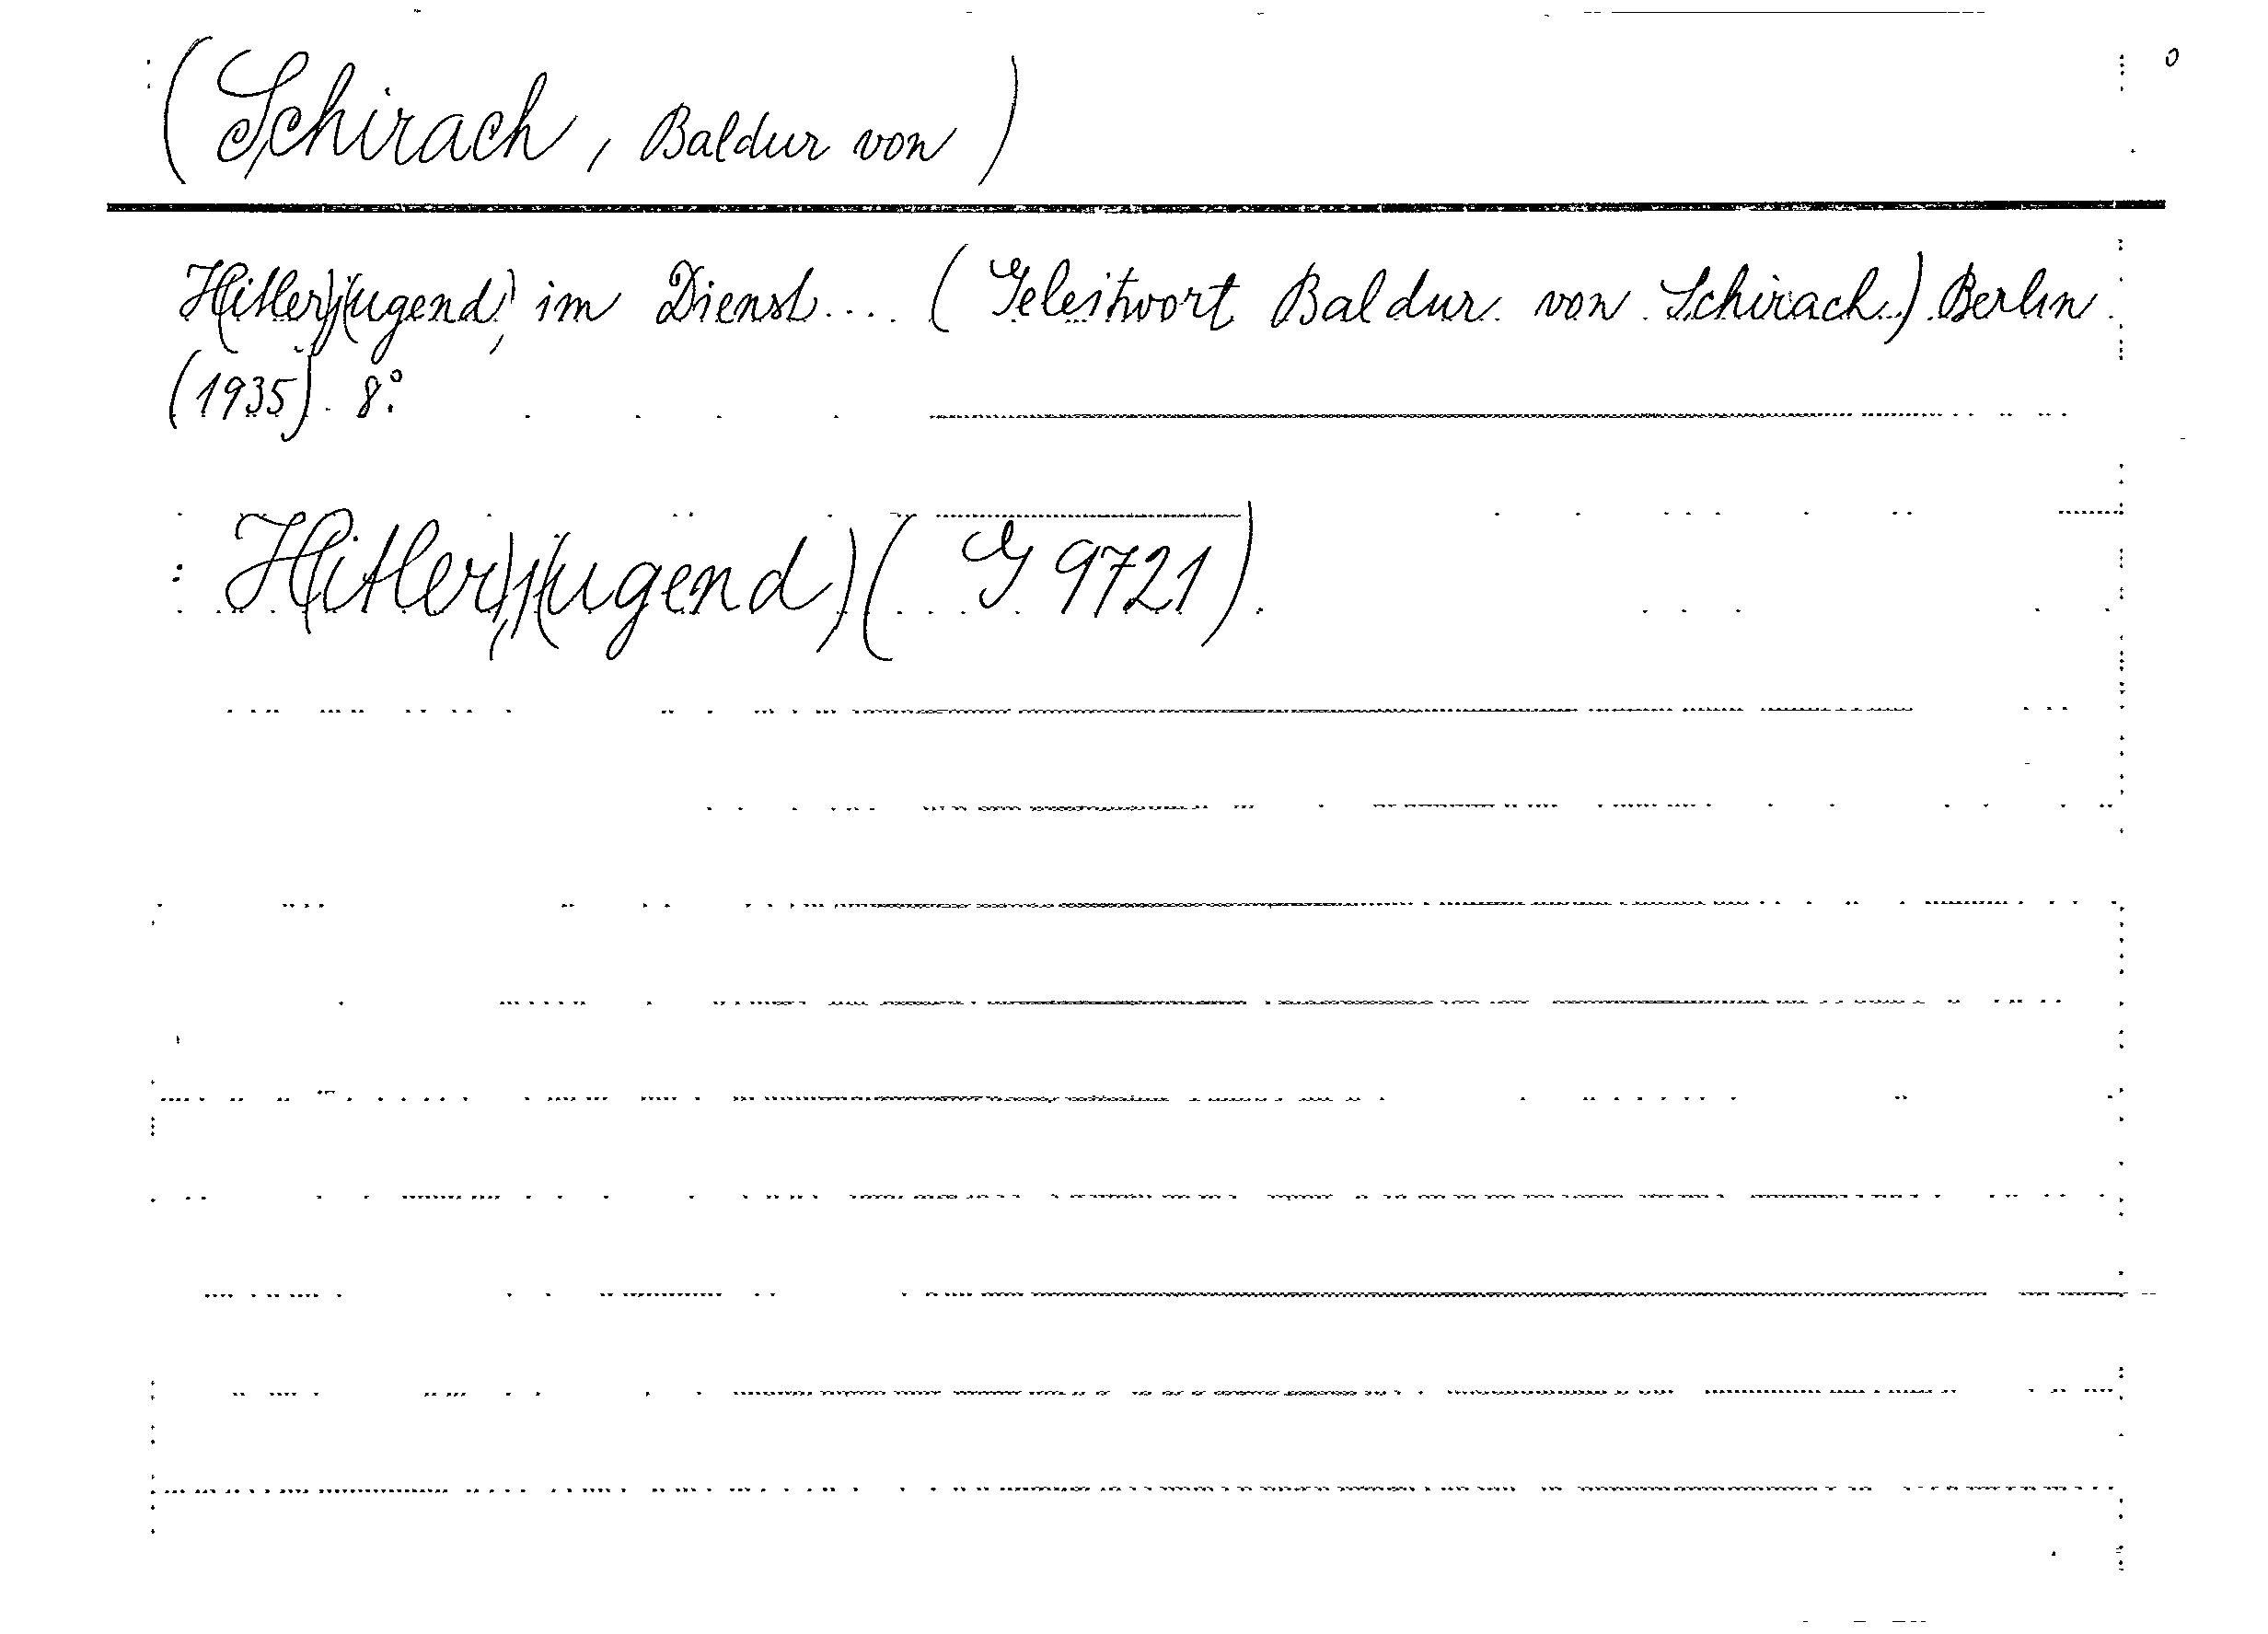 (Schirach, Baldur von)
H(itler)j(ugend) im Dienst.... (Geleitwort Baldur von Schirach.) Berlin
(1935). 8°.
H(itler),j(ugend)( G 9721).